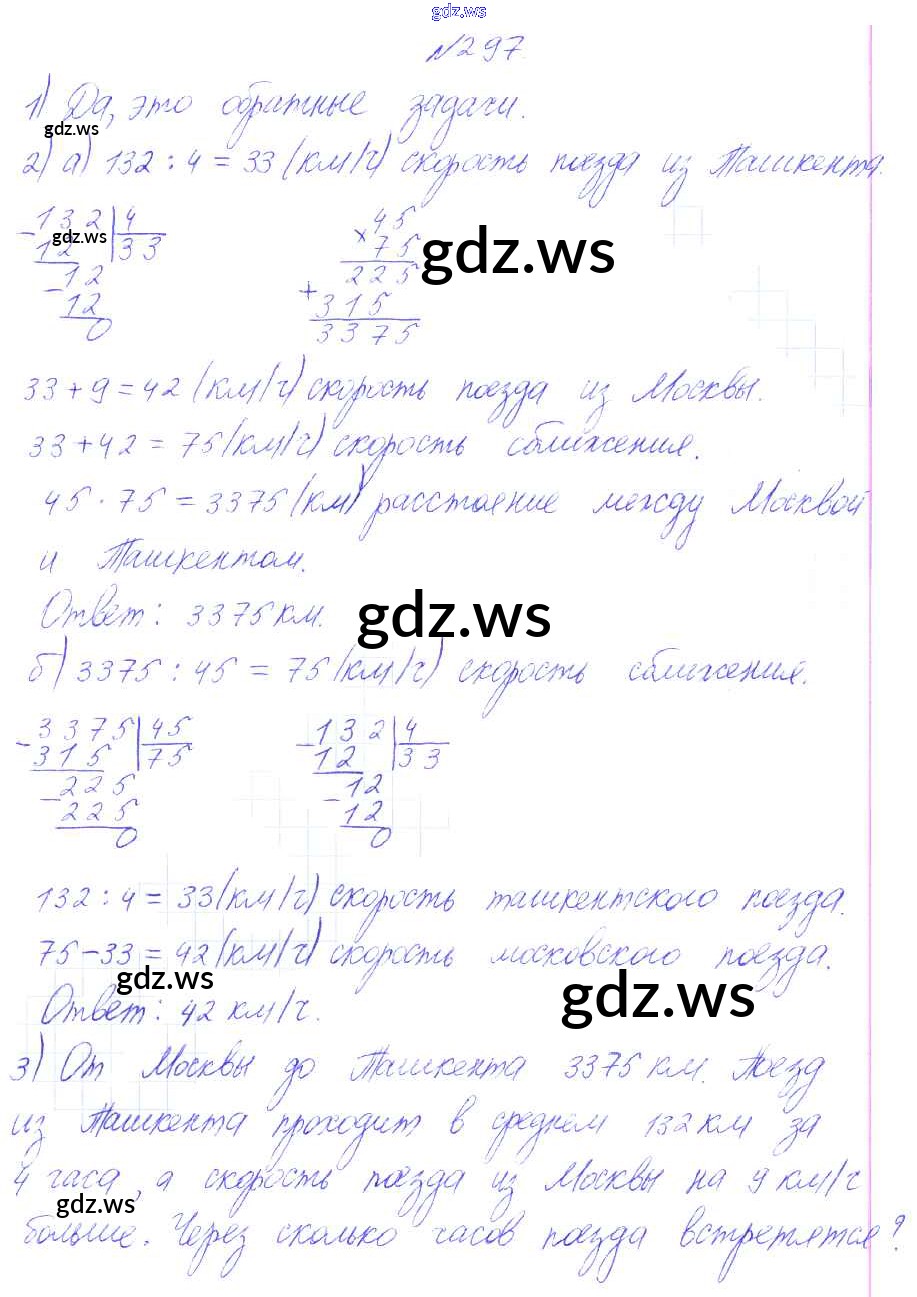 gdz.ws
№297.
1) Да, это обратные задачи.
gdz.ws
2) а) 132 : 4 = 33 (км/ч) скорость поезда из Ташкента.
- 132 | 4
12 | 33
gdz.ws
- 12
12
0
× 45
75
225
+ 315
3375
gdz.ws
33 + 9 = 42 (км/ч) скорость поезда из Москвы.
33 + 42 = 75 (км/ч) скорость сближения.
45 · 75 = 3375 (км) расстояние между Москвой
и Ташкентом.
Ответ: 3375 км.
gdz.ws
б) 3375 : 45 = 75 (км/ч) скорость сближения.
- 3375 | 45
315 | 75
- 225
225
0
- 132 | 4
12 | 33
- 12
12
0
132 : 4 = 33 (км/ч) скорость ташкентского поезда.
75 - 33 = 42 (км/ч) скорость московского поезда.
gdz.ws
gdz.ws
Ответ: 42 км/ч.
3) От Москвы до Ташкента 3375 км. Поезд
из Ташкента проходит в среднем 132 км за
4 часа, а скорость поезда из Москвы на 9 км/ч
gdz.ws
больше. Через сколько часов поезда встретятся?